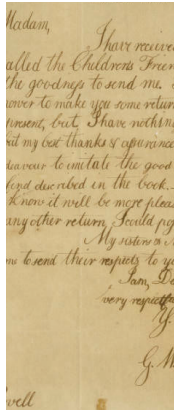 Madam,
I have receive
alled the Children's Frien
the goodness to send me.
ower to make you some retur
present, but, I have nothin
ut my best thanks & assurance
deavour to imitate the good
described in the book.
Know it will be more pleas
any other return I could po
My sisters &
me to send their respects to yo
I am, De
very respectf
Y
G. W
well